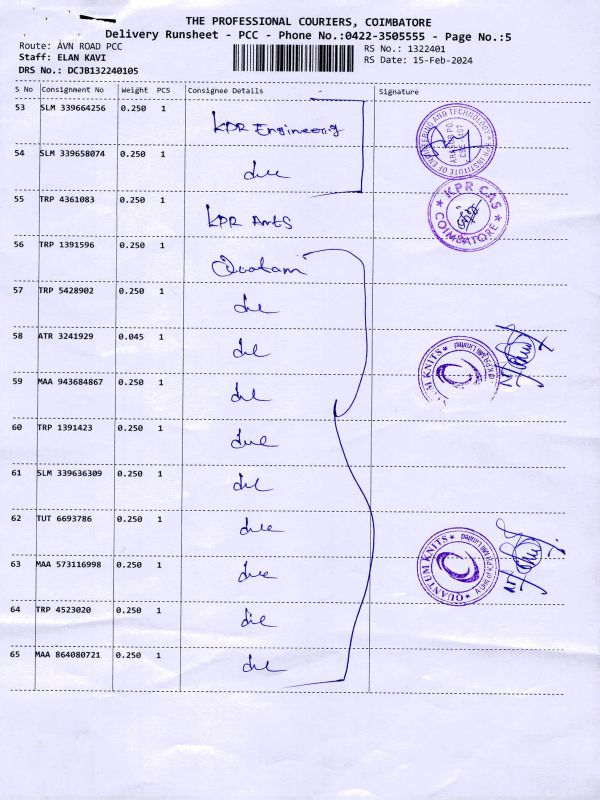 THE PROFESSIONAL COURIERS, COIMBATORE
Delivery Runsheet - PCC - Phone No.:0422-3505555 - Page No.:5
Route: AVN ROAD PCC
RS No.: 1322401
Staff: ELAN KAVI
RS Date: 15-Feb-2024
DRS No.: DCJB132240105
S No Consignment No Weight PCS Consignee Details Signature
53 SLM 339664256 0.250 1 KPR Engineering
54 SLM 339658074 0.250 1
55 TRP 4361083 0.250 1 KPR Arts
56 TRP 1391596 0.250 1
57 TRP 5428902 0.250 1
58 ATR 3241929 0.045 1
59 MAA 943684867 0.250 1
60 TRP 1391423 0.250 1
61 SLM 339636309 0.250 1
62 TUT 6693786 0.250 1
63 MAA 573116998 0.250 1
64 TRP 4523020 0.250 1
65 MAA 864080721 0.250 1
KPR INSTITUTE OF ENGINEERING AND TECHNOLOGY
KPR CAS
COIMBATORE
QUANTUM KNITS